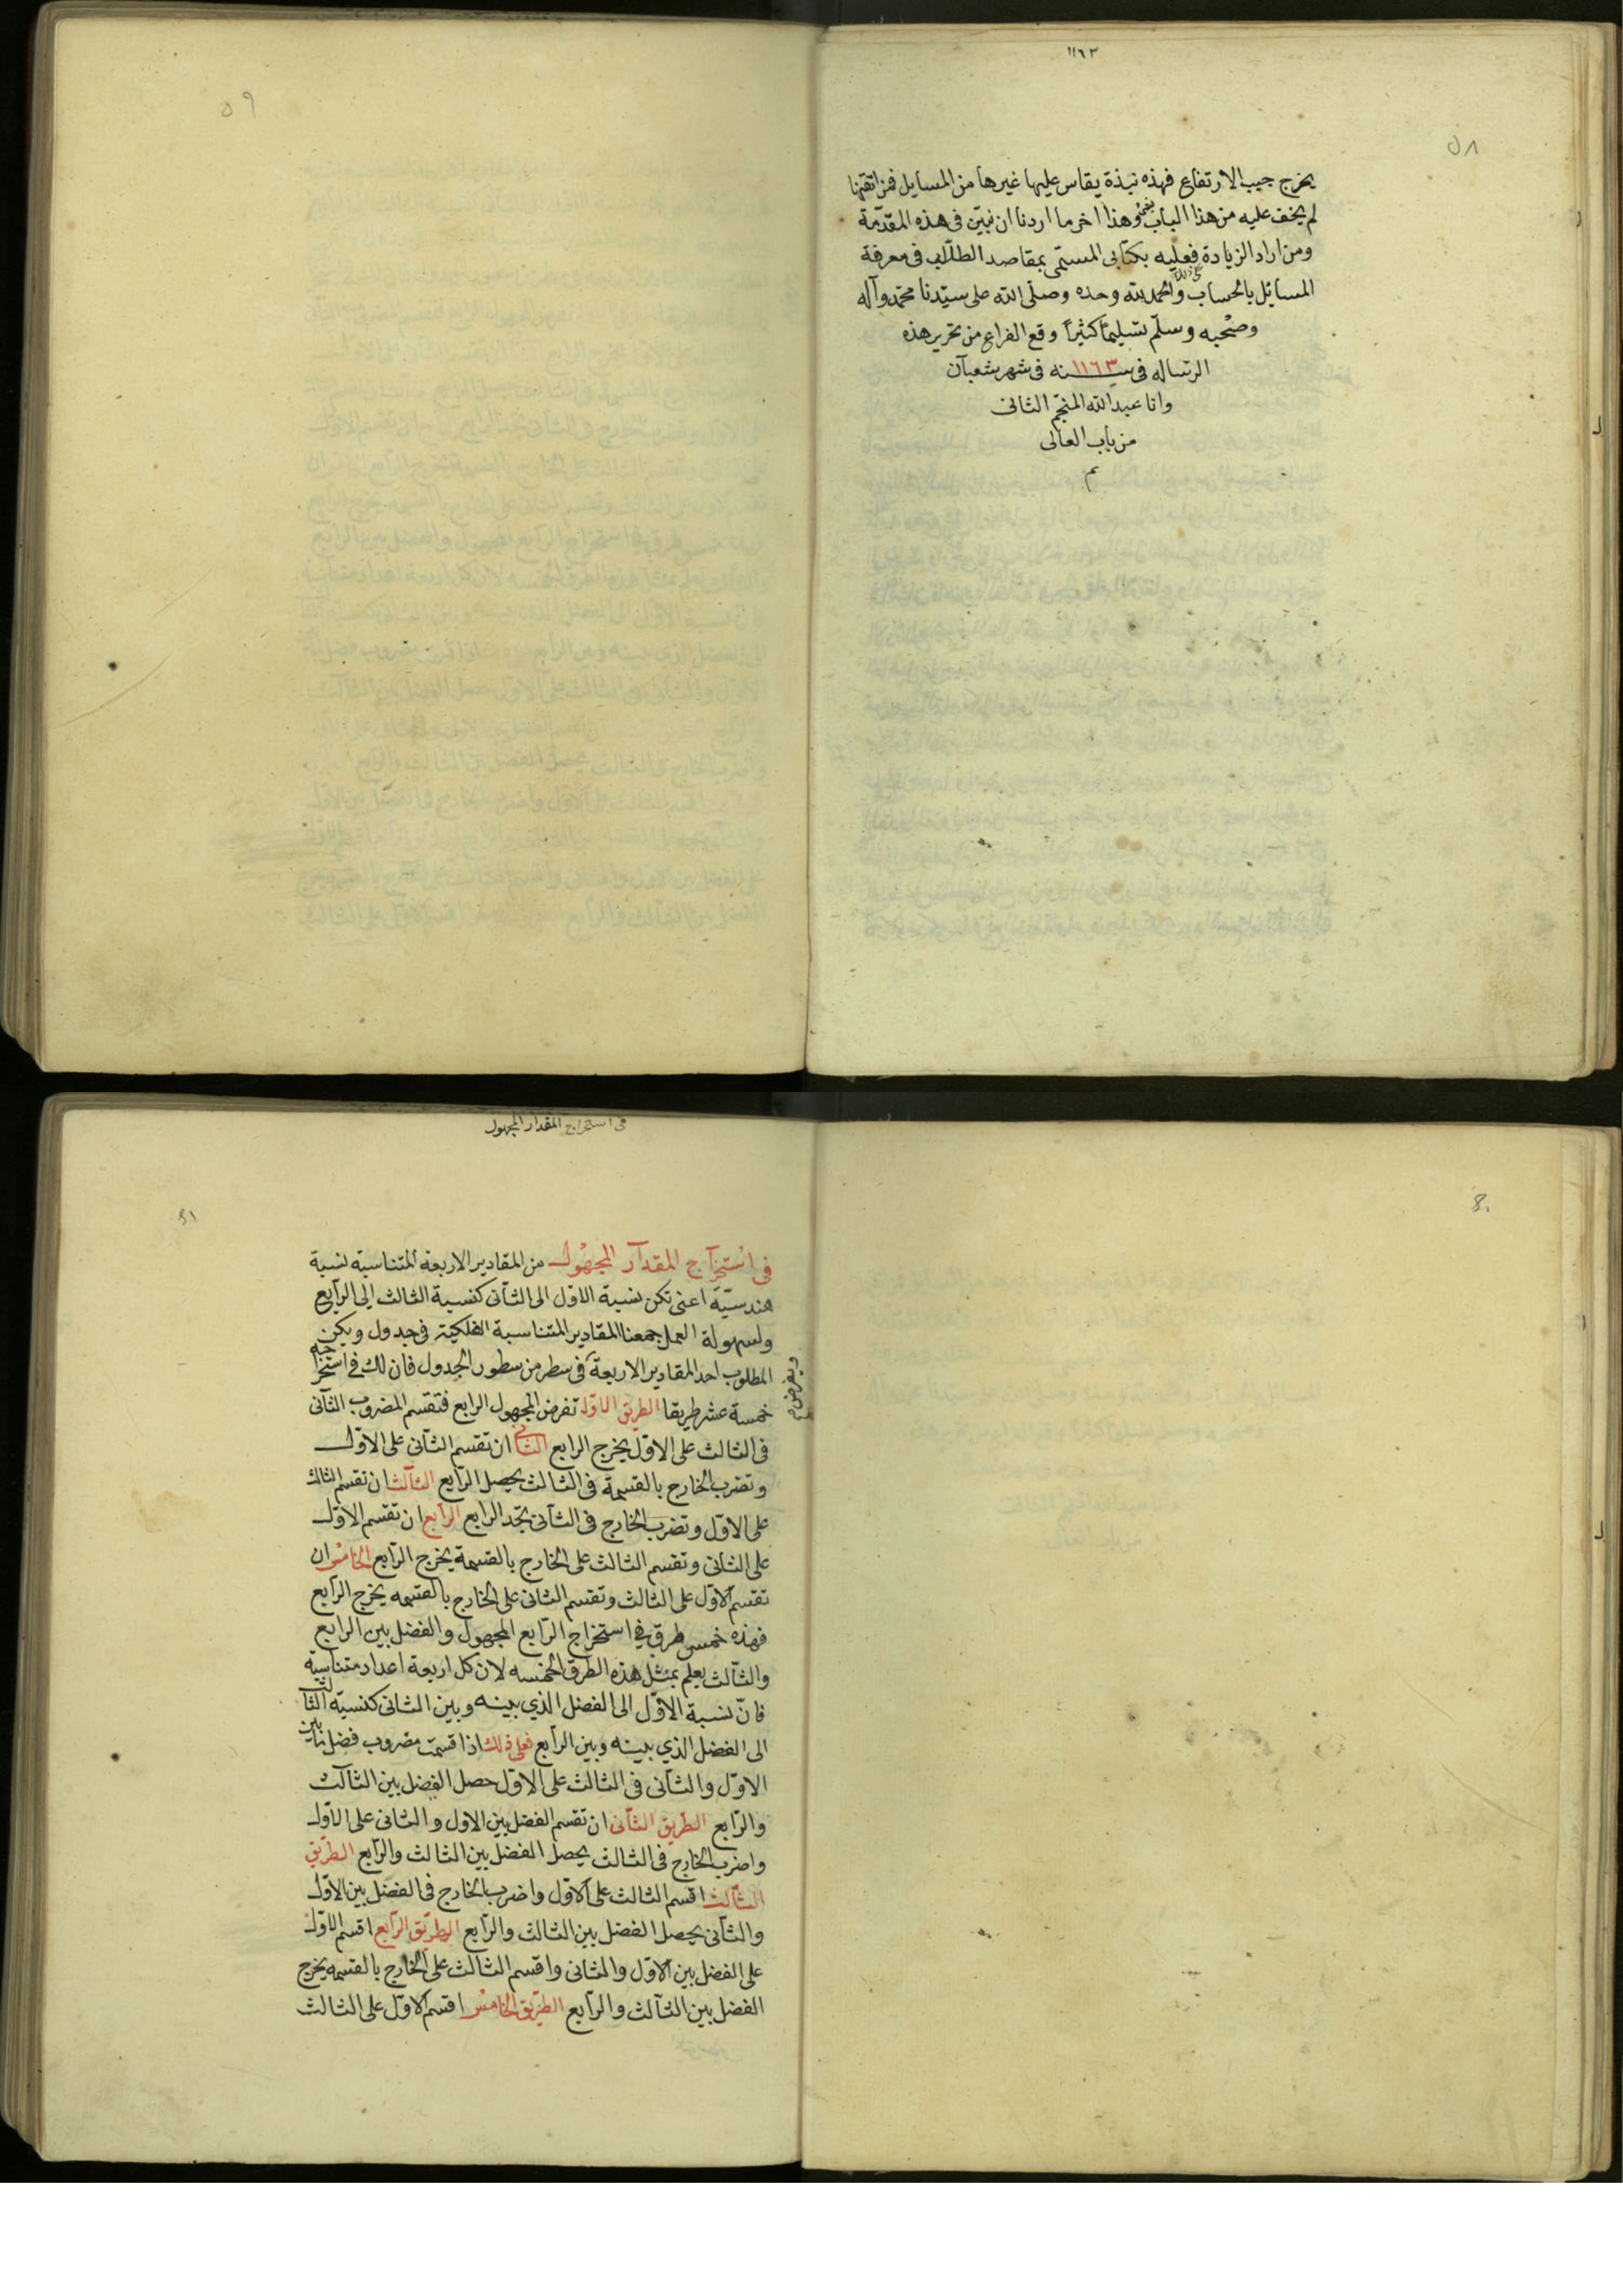 ١١٦٣
٥٨
يخرج جيب الارتفاع فهذه نبذة يقاس عليها غيرها من المسايل فمن اتقنها
لم يخف عليه من هذا الباب وهذا اخر ما اردنا ان نبيّن فى هذه المقدّمة
ومن اراد الزيادة فعليه بكتابى المستمى بمقاصد الطلّاب فى معرفة
المسائل بالحساب والحمد لله وحده وصلّى الله على سيّدنا محمّد وآله
وصحبه وسلّم تسليماً كثيراً وقع الفراغ من تحرير هذه
الرساله فى سنه ١١٦٣ فى شهر شعبآن
وانا عبد الله المنجّم الثانى
من باب العالى
م
٥٩
فى استخراج المقدار المجهول
فى استخرآج المقدآر المجهول من المقادير الاربعة المتناسبة نسبة
هندسيّة اعنى تكن نسبة الاوّل الى الثآنى كنسبة الثالث الى الرآبع
ولسهولة العمل جمعنا المقادير المتناسبة الفلكيّة فى جدول ويكن
المطلوب احد المقادير الاربعة فى سطر من سطور الجدول فان لك فى استخراجه
خمسة عشر طريقا الطريق الاوّل تفرض المجهول الرابع فتقسم المضروب الثآنى
فى الثالث على الاوّل يخرج الرابع الثانى ان تقسم الثآنى على الاوّل
وتضرب الخارج بالقسمة فى الثالث يحصل الرآبع الثآلث ان تقسم الثالث
على الاوّل وتضرب الخارج فى الثآنى تجد الرابع الرآبع ان تقسم الاوّل
على الثانى وتقسم الثالث على الخارج بالقسمة يخرج الرآبع الخامس ان
تقسم الاوّل على الثالث وتقسم الثانى على الخارج بالقسمه يخرج الرآبع
فهذه خمس طرق فى استخراج الرآبع المجهول والفضل بين الرابع
والثآلث يعلم بمثل هذه الطرق الخمسه لان كل اربعة اعداد متناسبة
فانّ نسبة الاوّل الى الفضل الذي بينه وبين الثانى كنسبة الثالث
الى الفضل الذي بينه وبين الرآبع فعلى ذلك اذا قسمت مضروب فضل ما بين
الاوّل والثآنى فى الثالث على الاوّل حصل الفضل بين الثآلث
والرّابع الطريق الثآنى ان تقسم الفضل بين الاول والثانى على الاوّل
واضرب الخارج فى الثالث يحصل الفضل بين الثالث والرآبع الطريق
الثآلث اقسم الثالث على الاوّل واضرب الخارج فى الفضل بين الاوّل
والثآنى يحصل الفضل بين الثالث والرآبع الطريق الرآبع اقسم الاوّل
على الفضل بين الاوّل والثانى واقسم الثالث على الخارج بالقسمه يخرج
الفضل بين الثآلث والرآبع الطريق الخامس اقسم الاوّل على الثالث